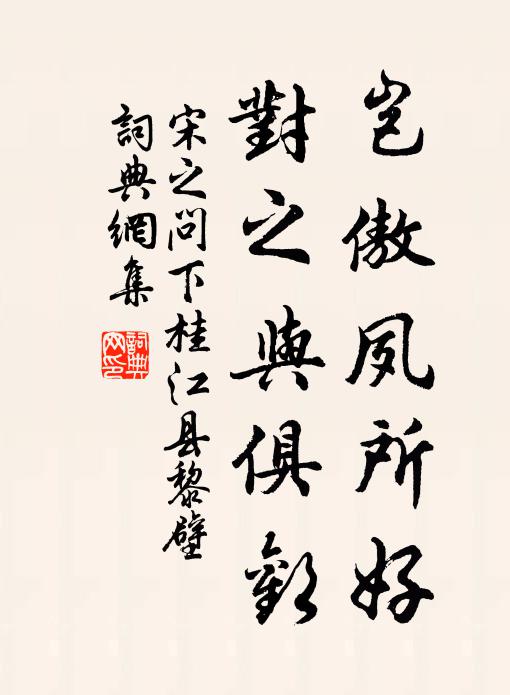 豈傲夙所好
對之與俱歡
宋之问下桂江县黎壁
詞典網集
詞典网印